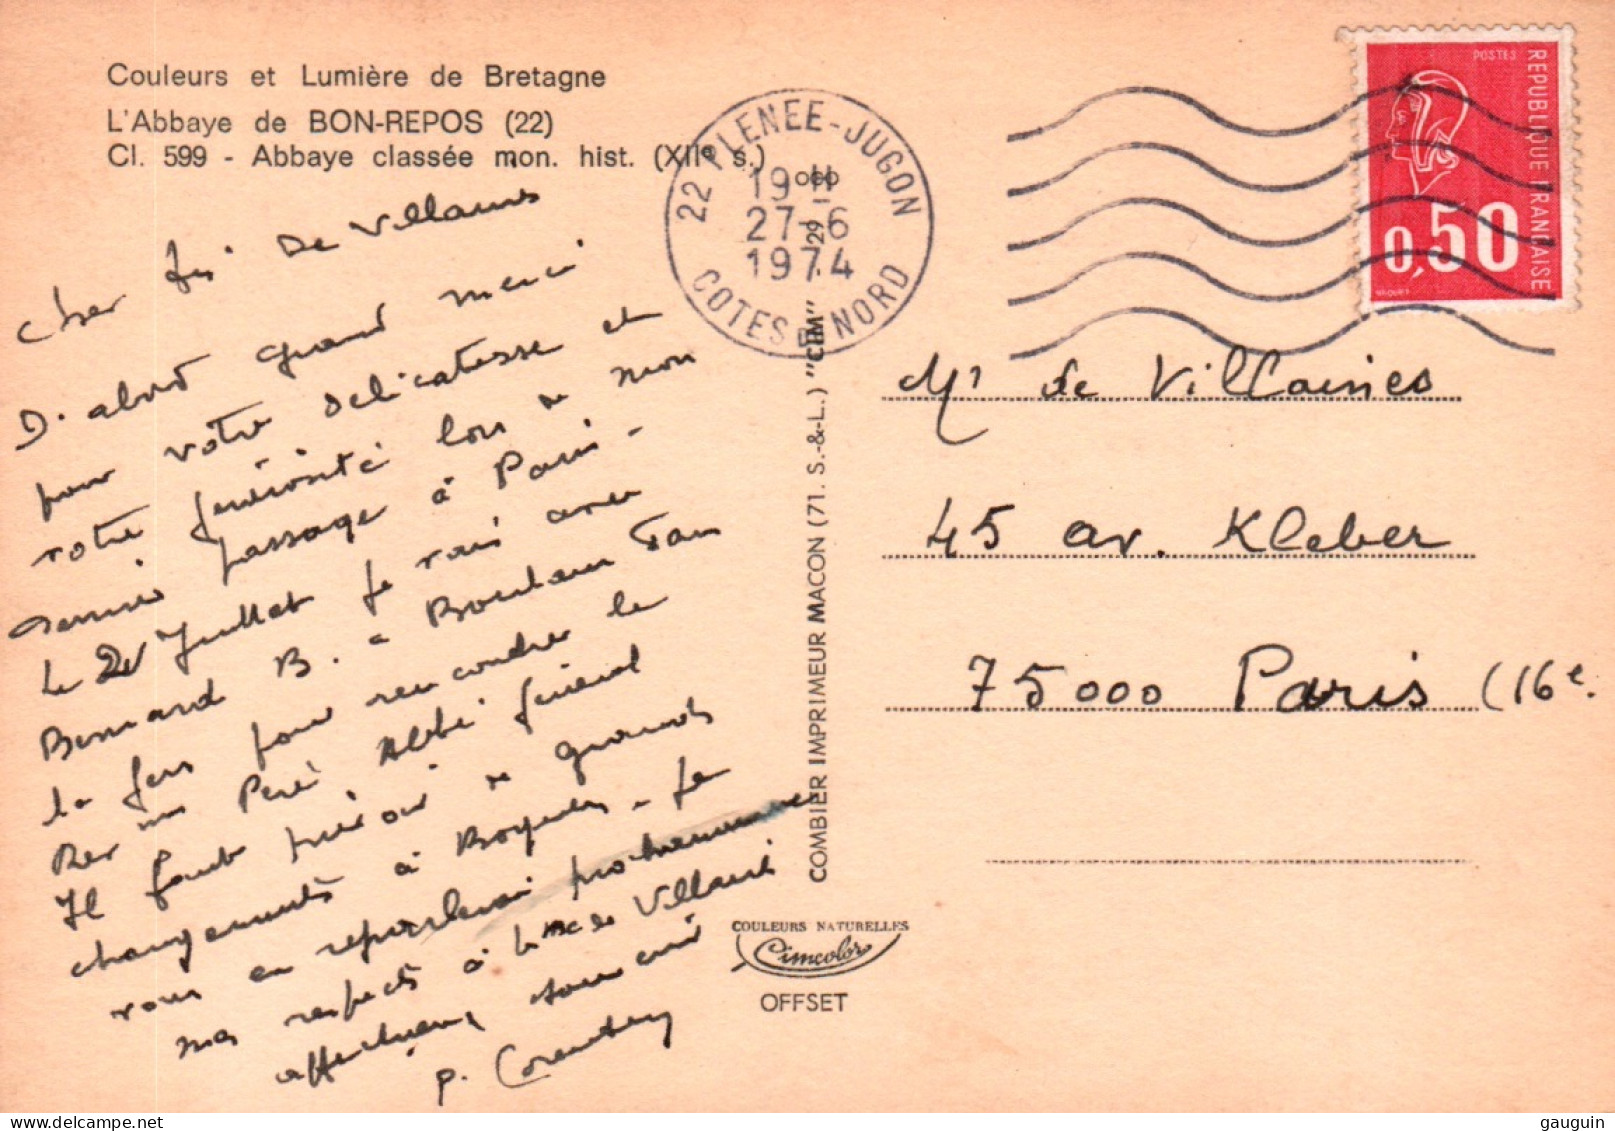 Couleurs et Lumière de Bretagne
L'Abbaye de BON-REPOS (22)
Cl. 599 - Abbaye classée mon. hist. (XIIe s.)
Cher de Villaines
D'abord grand merci
pour votre délicatesse et
votre générosité lors de mon
dernier passage à Paris -
Le Juillet je vais avec
Bernard B. à
la pour rencontrer le
Rev Père Abbé général
Il faut prévoir de grands
changements à Boquen - Je
vous en reparlerai prochainement
mes respects à de Villaines
affectueux souvenir
p. Corentin
22 PLENEE-JUGON
19 H
27-6
1974
COTES D NORD
COMBIER IMPRIMEUR MACON (71. S.-&-L.) "CIM"
COULEURS NATURELLES
Cimcolor
OFFSET
POSTES
REPUBLIQUE FRANCAISE
0,50
Mr de Villaines
45 av. Kleber
75000 Paris (16e.
gauguin